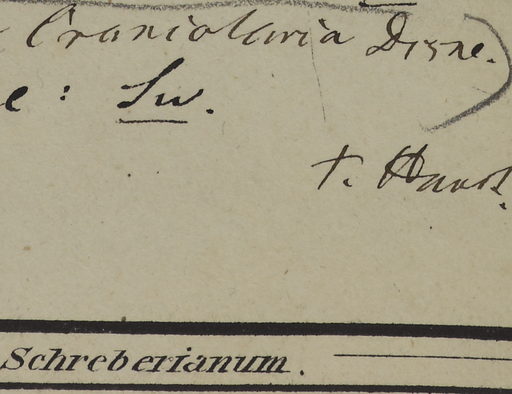 Craniolaria
e : Sw.
t. Hand.
Schreberianum.